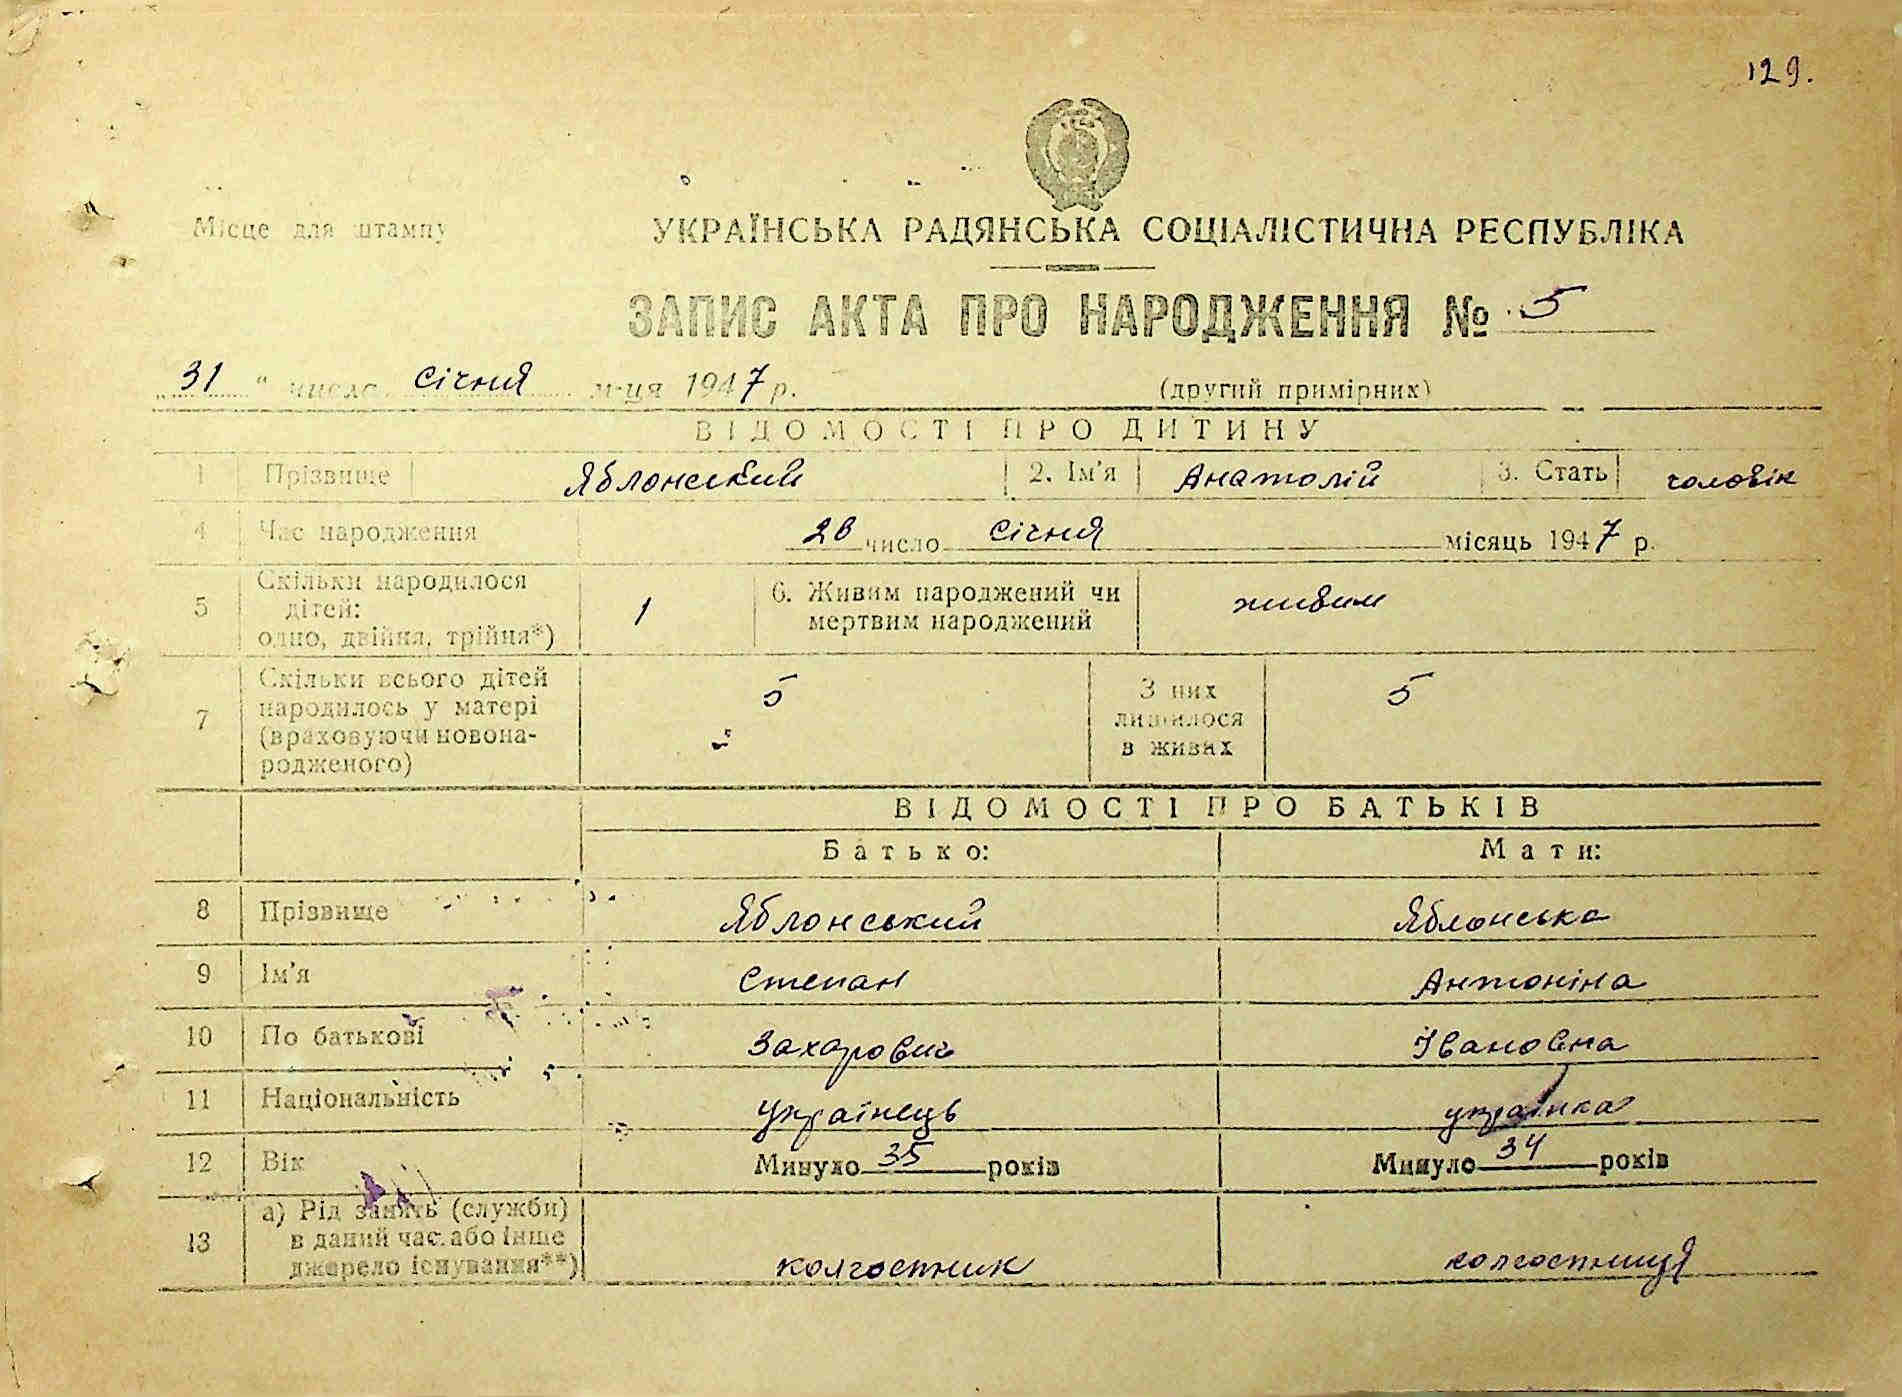 129.
Місце для штампу
УКРАЇНСЬКА РАДЯНСЬКА СОЦІАЛІСТИЧНА РЕСПУБЛІКА
ЗАПИС АКТА ПРО НАРОДЖЕННЯ № 5
„31“ число січня м-ця 1947 р. (другий примірних)
ВІДОМОСТІ ПРО ДИТИНУ
1 Прізвище Яблонський 2. Ім'я Анатолій 3. Стать чоловік
4 Час народження число січня місяць 1947 р.
5 Скільки народилося дітей: одно, двійня, трійня*) 1 6. Живим народжений чи мертвим народжений живим
7 Скільки всього дітей народилось у матері (враховуючи новонародженого) 5 З них лишилося в живих 5
ВІДОМОСТІ ПРО БАТЬКІВ
Батько: Мати:
8 Прізвище Яблонський Яблонська
9 Ім'я Степан Антоніна
10 По батькові Захарович Івановна
11 Національність українець українка
12 Вік Минуло 35 років Минуло 34 років
13 а) Рід занять (служби) в даний час або інше джерело існування**) колгостник колгостниця